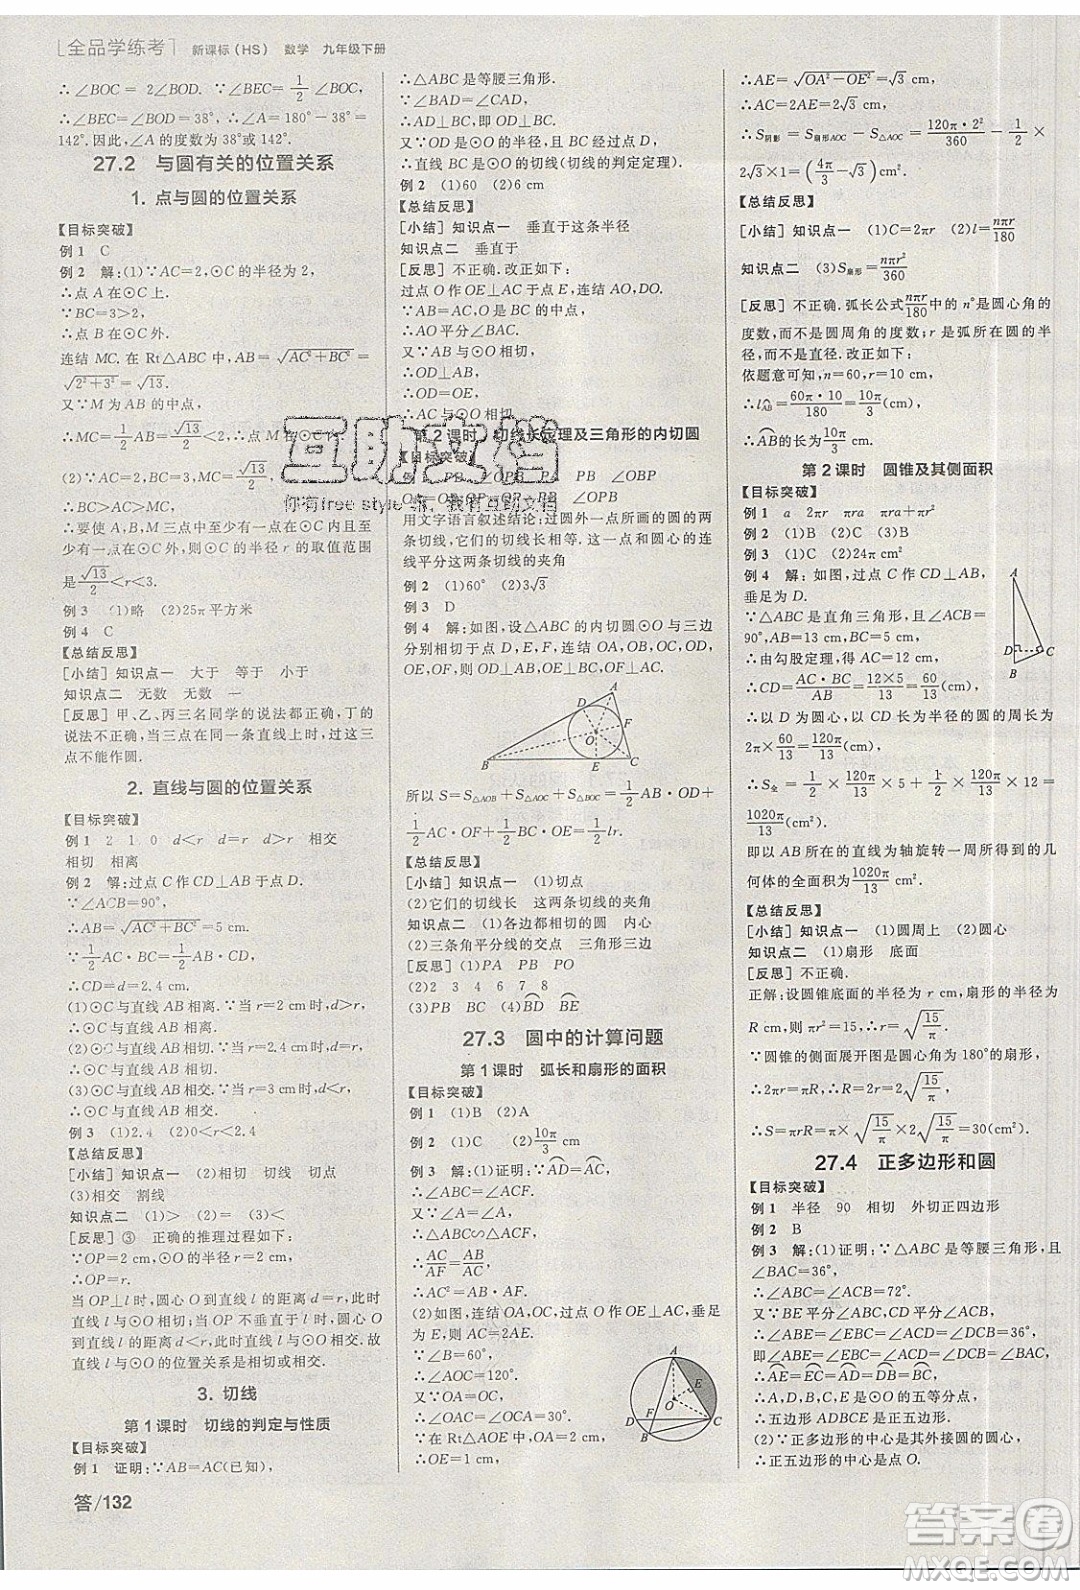 全品学练考 新课标(HS) 数学 九年级下册
∴∠BOC=2∠BOD. ∵∠BEC=1/2∠BOC,
∴∠BEC=∠BOD=38°,∴∠A=180°-38°=
142°.因此,∠A的度数为38°或142°.
27.2 与圆有关的位置关系
1. 点与圆的位置关系
【目标突破】
例1 C
例2 解:(1)∵AC=2,⊙C的半径为2,
∴点A在⊙C上.
∵BC=3>2,
∴点B在⊙C外.
连结MC.在Rt△ABC中,AB=√(AC²+BC²)=
√(2²+3²)=√13.
又∵M为AB的中点,
∴MC=1/2AB=√13/2<2,∴点M在⊙C内.
(2)∵AC=2,BC=3,MC=√13/2,
∴BC>AC>MC,
∴要使A,B,M三点中至少有一点在⊙C内且至少
有一点在⊙C外,则⊙C的半径r的取值范围
是√13/2<r<3.
例3 (1)略 (2)25π平方米
例4 C
【总结反思】
[小结] 知识点一 大于 等于 小于
知识点二 无数 无数 一
[反思] 甲、乙、丙三名同学的说法都正确,丁的
说法不正确,正确的说法是在同一条直线上的三
点不能作圆.
2. 直线与圆的位置关系
【目标突破】
例1 2 1 0 d<r d=r d>r 相交
相切 相离
例2 解:过点C作CD⊥AB于点D.
∵∠ACB=90°,
∴AB=√(AC²+BC²)=5 cm.
∵1/2AC·BC=1/2AB·CD,
∴CD=2.4 cm.
(1)⊙C与直线AB相离.∵当r=2 cm时,d>r,
∴⊙C与直线AB相离.
(2)⊙C与直线AB相切.∵当r=2.4 cm时,d=r,
∴⊙C与直线AB相切.
(3)⊙C与直线AB相交.∵当r=3 cm时,d<r,
∴⊙C与直线AB相交.
例3 (1)2.4 (2)0<r<2.4
【总结反思】
[小结] 知识点一 (1)相切 切线 切点
(3)相交 割线
知识点二 (1)> (2)= (3)<
[反思] ③ 正确的推理过程如下:
∵OP=2 cm,⊙O的半径r=2 cm,
∴OP=r.
当OP⊥l时,圆心O到直线l的距离d=r,此时
直线l与⊙O相切;当OP不垂直于l时,圆心O
到直线l的距离d<r,此时直线l与⊙O相交.故
直线l与⊙O的位置关系是相切或相交.
3. 切线
第1课时 切线的判定与性质
【目标突破】
例1 证明:∵AB=AC(已知),
答/132
∴△ABC是等腰三角形.
又∵D为BC的中点,
∴AD⊥BC,即OD⊥BC.
又∵OD是⊙O的半径,
∴直线BC是⊙O的切线(切线的判定定理).
例2 (1)60 (2)6 cm
【总结反思】
[小结] 知识点一 垂直于这条半径
知识点二 垂直于
[反思] 不正确.改正如下:
过点O作OE⊥AC于点E,连结OD,OA.
∵AB=AC,O是BC的中点,
∴AO平分∠BAC.
∵AB与⊙O相切,
∴OD⊥AB,
∴OD=OE,
∴AC与⊙O相切.
第2课时 切线长定理及三角形的内切圆
【目标突破】
PB ∠OBP
PB
用文字语言叙述结论:过圆外一点所画的圆的两
条切线,它们的切线长相等.这一点和圆心的连
线平分这两条切线的夹角
例2 (1)60° (2)3√3
例3 D
例4 解:如图,设△ABC的内切圆⊙O与三边
分别相切于点D,E,F,连结OA,OB,OC,OD,
OE,OF,则OD⊥AB,OE⊥BC,OF⊥AC.
A D F O B E C
所以S=S△AOB+S△AOC+S△BOC=1/2AB·OD+
1/2AC·OF+1/2BC·OE=1/2lr.
【总结反思】
[小结] 知识点一 (1)切点
(2)它们的切线长 这两条切线的夹角
知识点二 (1)各边都相切的圆 内心
(2)三条角平分线的交点 三角形三边
[反思] (1)PA PB PO
(2)1 2 3 4 5 6 7 8
(3)PB BC (4)BD BE
27.3 圆中的计算问题
第1课时 弧长和扇形的面积
【目标突破】
例1 (1)B (2)A
例2 (1)C (2)10π/3 cm
例3 解:(1)证明:∵AD=AC,
∴∠ABC=∠ACF.
又∵∠A=∠A,
∴△ABC∽△ACF,
∴AC/AF=AB/AC,
∴AC²=AB·AF.
(2)如图,连结OA,OC,过点O作OE⊥AC,垂足
为E,则AC=2AE.
∵∠ABC=60°,
∴∠AOC=120°.
又∵OA=OC,
∴∠OAC=∠OCA=30°.
∵在Rt△AOE中,OA=2 cm,
∴OE=1 cm,
A E O D F B C
∴AE=√(OA²-OE²)=√3 cm,
∴AC=2AE=2√3 cm,
∴S阴影=S扇形AOC-S△AOC=120π·2²/360-1/2×
2√3×1=(4π/3-√3)cm².
【总结反思】
[小结] 知识点一 (1)C=2πr (2)l=nπr/180
知识点二 (3)S扇形=nπr²/360
[反思] 不正确.弧长公式nπr/180中的n°是圆心角的
度数,而不是圆周角的度数;r是弧所在的圆的半
径,而不是直径.改正如下:
依题意可知,n=60,r=10 cm,
∴lAB=60π·10/180=10π/3(cm),
∴AB的长为10π/3 cm.
第2课时 圆锥及其侧面积
【目标突破】
例1 a 2πr πra πra+πr²
例2 (1)B (2)C
例3 (1)C (2)24π cm²
例4 解:如图,过点C作CD⊥AB,
垂足为D.
∵△ABC是直角三角形,∠ACB=
90°,AB=13 cm,BC=5 cm,
∴由勾股定理,得AC=12 cm,
∴CD=AC·BC/AB=12×5/13=60/13(cm),
A D C B
∴以D为圆心,以CD长为半径的圆的周长为
2π×60/13=120π/13(cm),
∴S全=1/2×120π/13×5+1/2×120π/13×12=
1020π/13(cm²),
即以AB所在的直线为轴旋转一周所得到的几
何体的全面积为1020π/13 cm².
【总结反思】
[小结] 知识点一 (1)圆周上 (2)圆心
知识点二 (1)扇形 底面
[反思] 不正确.
正解:设圆锥底面的半径为r cm,扇形的半径为
R cm,则πr²=15,∴r=√(15/π).
∵圆锥的侧面展开图是圆心角为180°的扇形,
∴2πr=πR,∴R=2r=2√(15/π),
∴S=πrR=π×√(15/π)×2√(15/π)=30(cm²).
27.4 正多边形和圆
【目标突破】
例1 半径 90 相切 外切正四边形
例2 B
例3 解:(1)证明:∵△ABC是等腰三角形,且
∠BAC=36°,
∴∠ABC=∠ACB=72°.
又∵BE平分∠ABC,CD平分∠ACB,
∴∠ABE=∠CBE=∠BCD=∠ACD=36°,
即∠BAC=∠ABE=∠CBE=∠BCD=∠ACD,
∴AE=EC=BC=DB=AD,
∴A,D,B,C,E是⊙O的五等分点,
∴五边形ADBCE是正五边形.
(2)∵正五边形的中心是其外接圆的圆心,
∴正五边形的中心是点O.
互助文档
你有free style吗,我有互助文档
答案圈
MXQE.COM